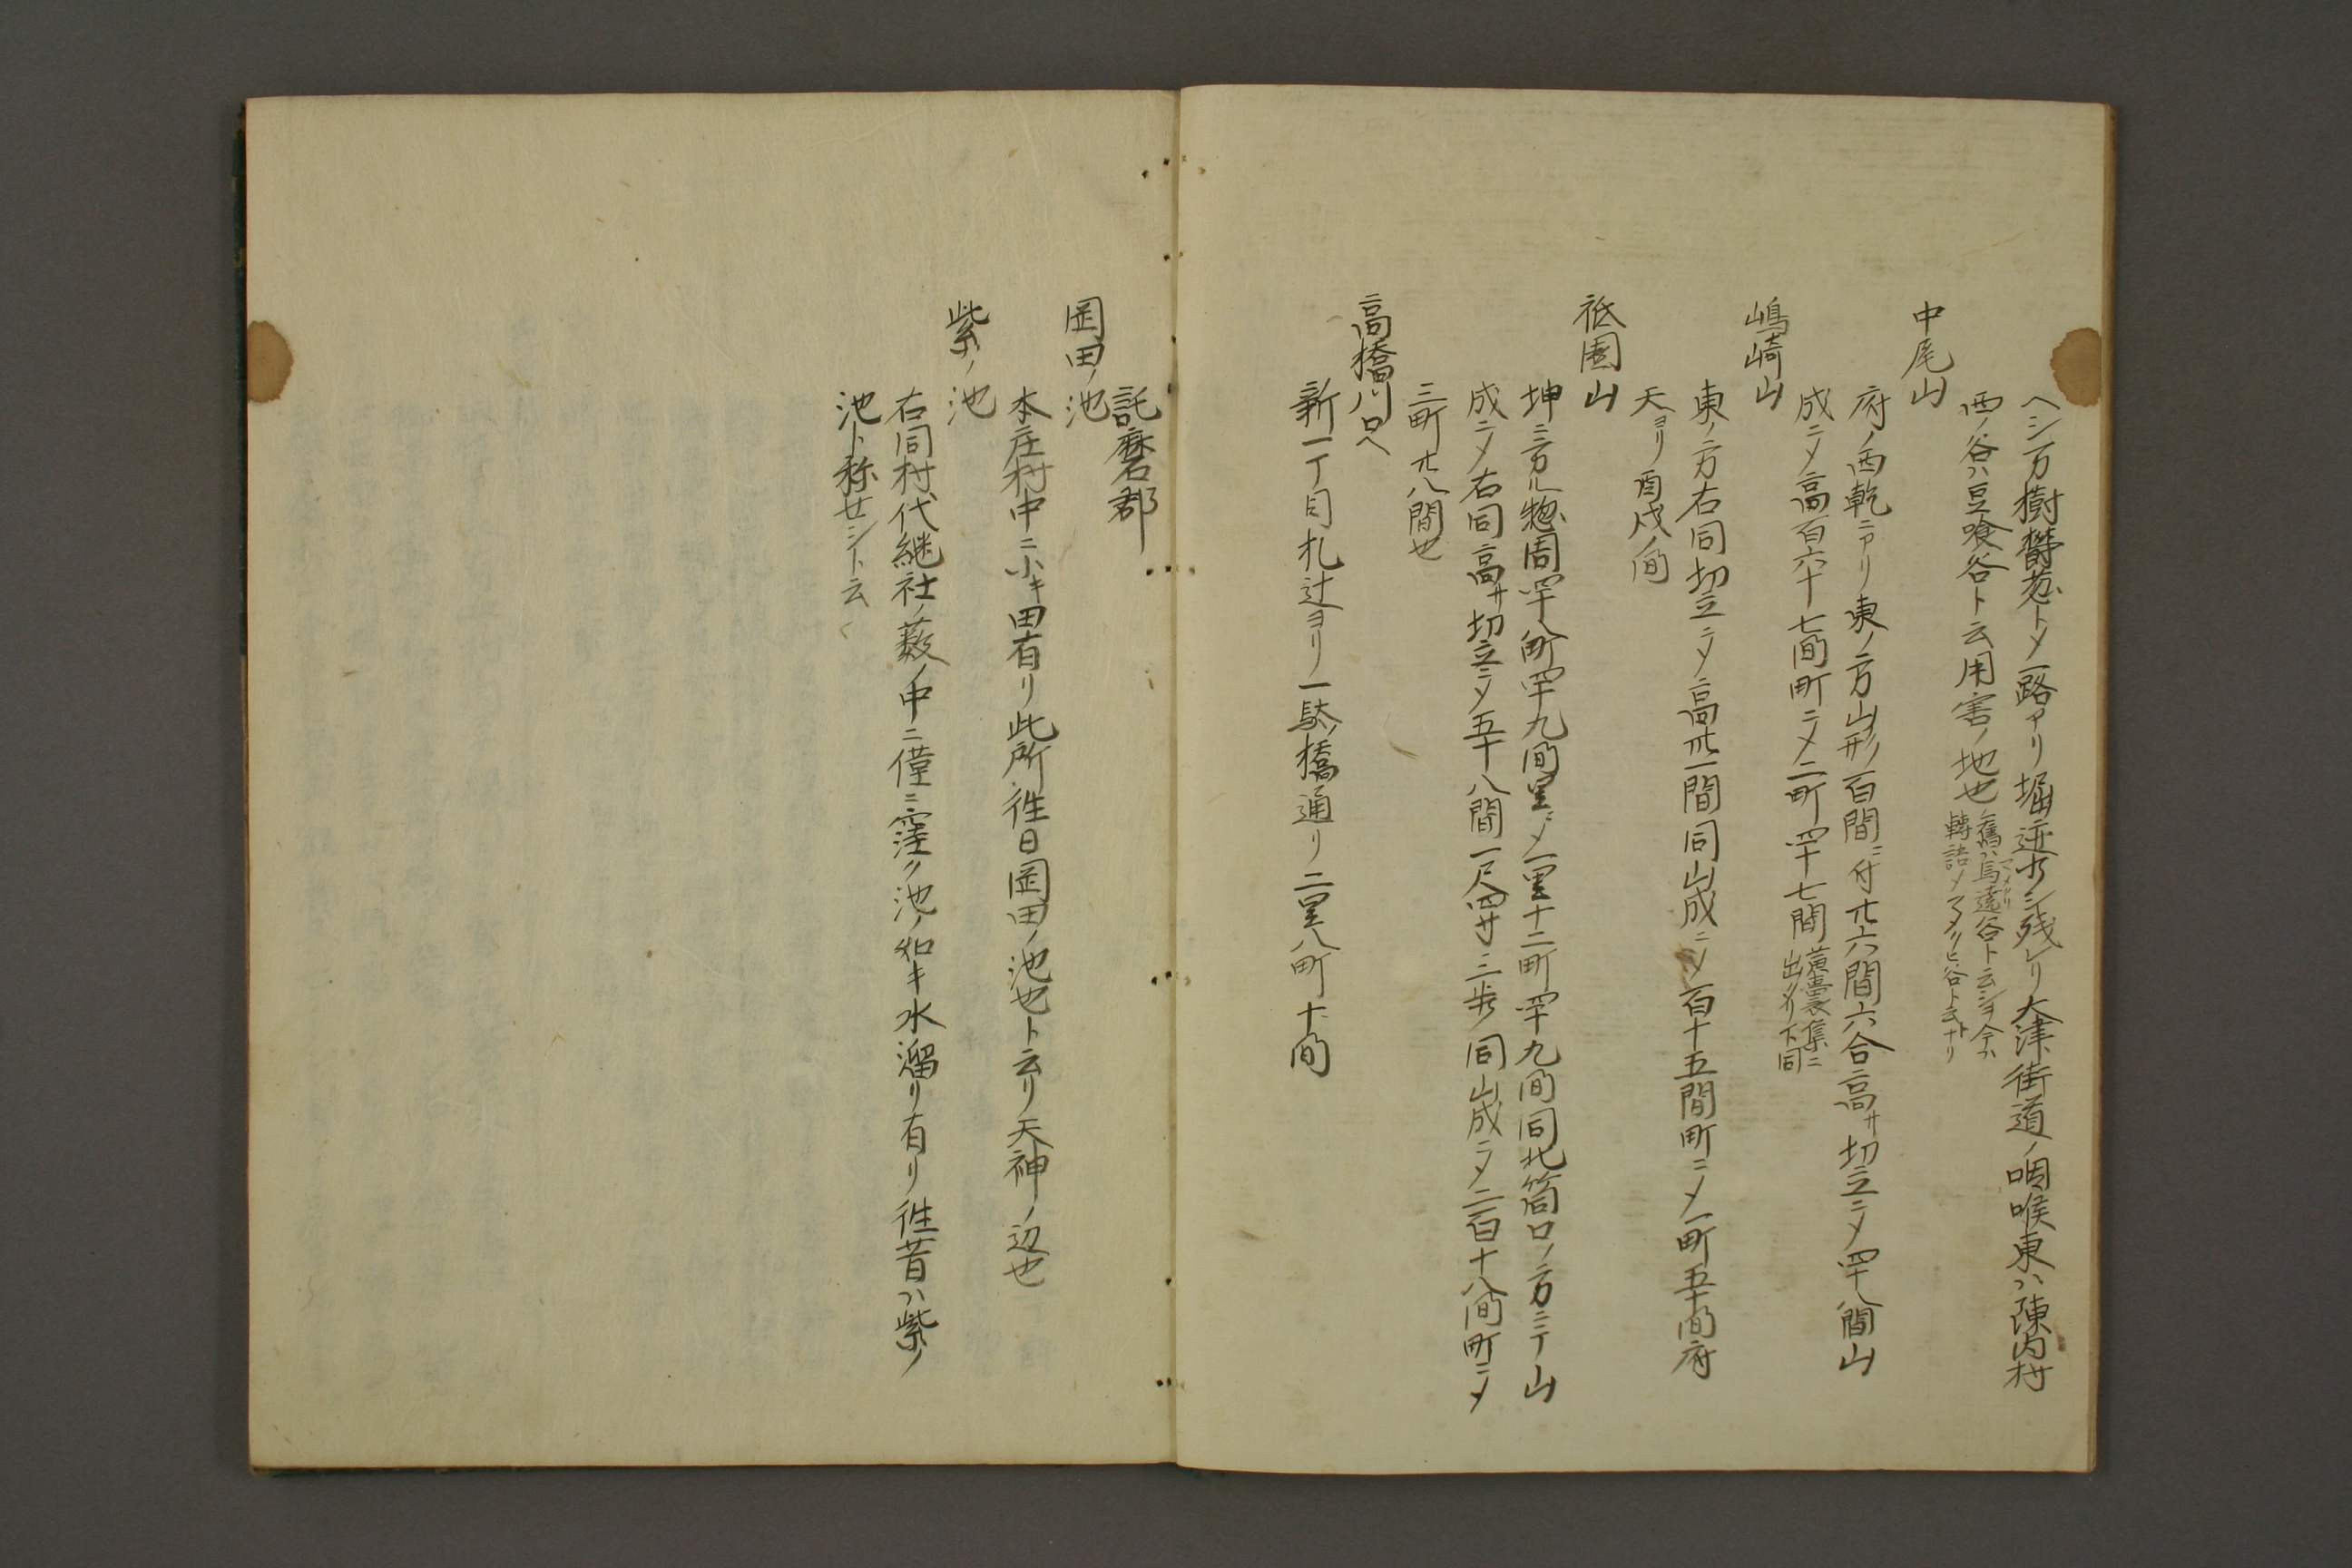 ヘシ万樹欝葱トメ一路アリ堀迹ホシ残レリ大津街道ノ咽喉東ハ陳内村
西ノ谷ハ豆喰谷ト云用害ノ地也
舊ハ馬遠谷ト云シヲ今ハ
轉語メマメクヒ谷ト云ナリ
中尾山
府ノ西乾ニアリ東ノ方山形百間ニ付廿六間六合高サ切立ニメ四十八間山
成ニメ高百六十七間町ニメ二町四十七間
黄嚢集ニ
出タリ下同
嶋崎山
東ノ方右同切立ニメ高廿一間同山成ニメ百十五間町ニメ一町五十間府
天ヨリ酉戌ノ間
祇園山
坤ニ當ル惣周四十八町四十九間里ニメ一里十二町四十九間同北筒口ノ方ニテ山
成ニメ右同高サ切立ニメ五十八間一尺四寸三歩同山成ニメ二百十八間町ニメ
三町卅八間也
高橋川口ヘ
新一丁目札辻ヨリ一駄橋通リ二里八町十間
託磨郡
岡田ノ池
本庄村中ニ小キ田有リ此所往日岡田ノ池也ト云リ天神ノ辺也
紫ノ池
右同村代継社ノ藪ノ中ニ僅ニ窪ク池ノ如キ水溜リ有リ徃昔ハ紫ノ
池ト称セシト云